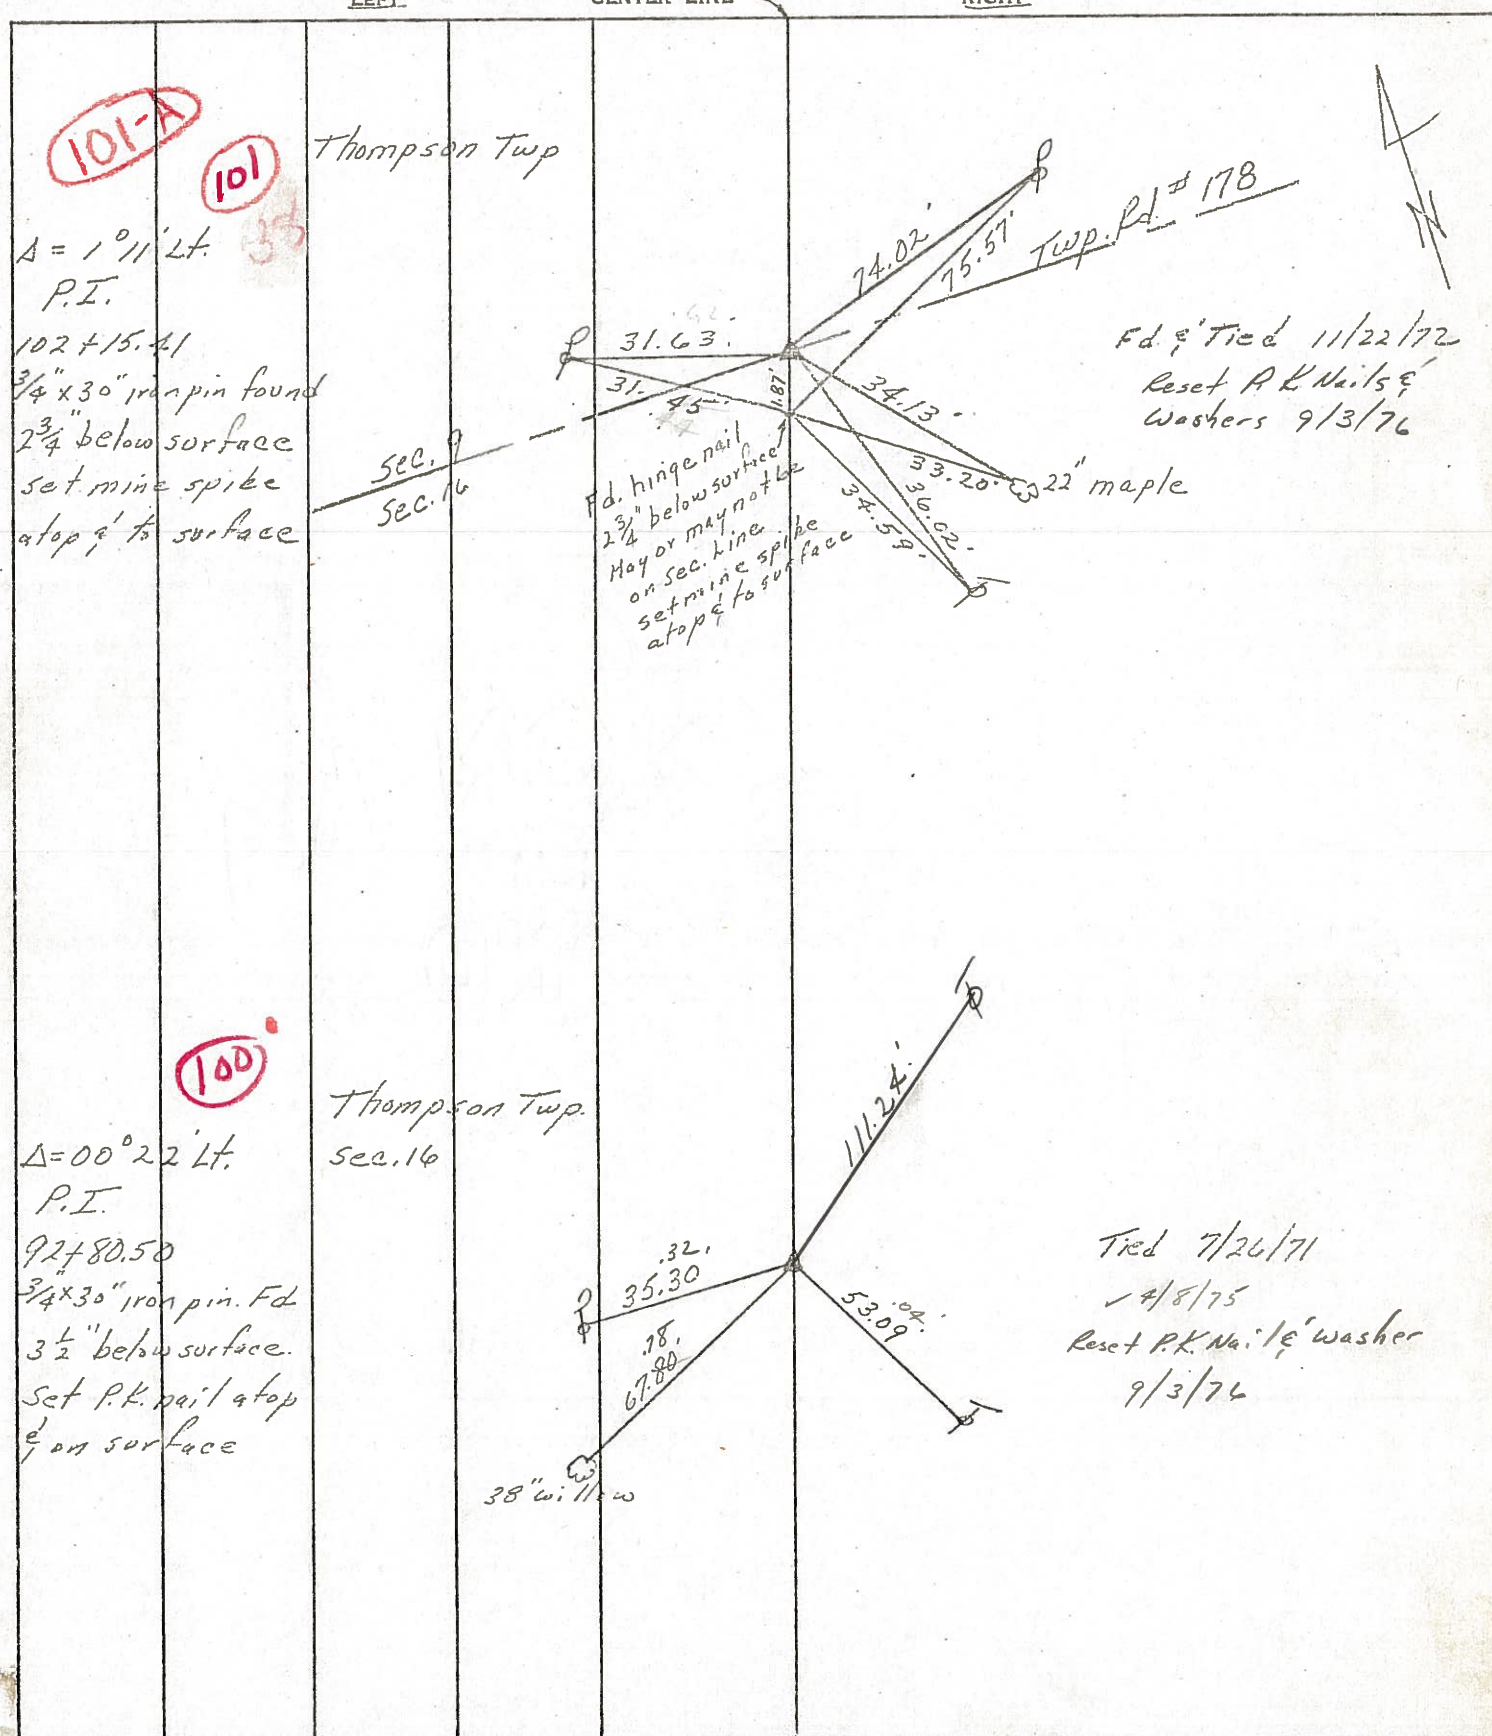 LEFT
CENTER LINE
RIGHT
101-A
101
Thompson Twp
Δ = 1°11' Lt.
P.I.
102+15.41
3/4"x30" iron pin found
2 3/4" below surface
set mine spike
atop & to surface
sec. 9
sec. 16
31.63'
31.45'
1.87'
74.02'
75.57'
Twp. Rd. # 178
34.13'
33.20'
36.02'
34.59'
22" maple
Fd. hinge nail
2 3/4" below surface
May or may not be
on sec. Line
set mine spike
atop & to surface
N
Fd. & Tied 11/22/72
Reset P.K. Nails &
Washers 9/3/76
100
Thompson Twp.
sec. 16
Δ=00°22' Lt.
P.I.
92+80.50
3/4"x30" iron pin. Fd
3 1/2" below surface.
Set P.K. nail atop
& on surface
111.24'
.32'
35.30
.78'
67.80
38" willow
.04'
53.09
Tied 7/26/71
✓ 4/8/75
Reset P.K. Nail & Washer
9/3/76